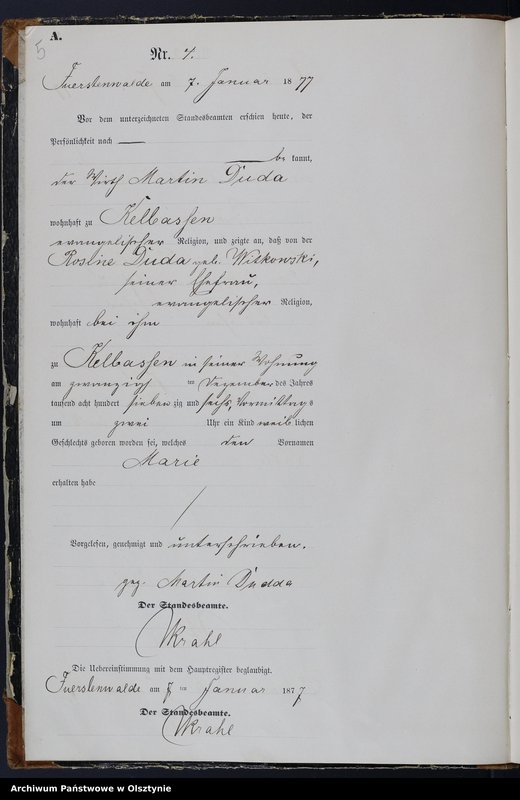 5
A.
Nr. 4.
Fuerstenwalde am 7. Januar 1877
Vor dem unterzeichneten Standesbeamten erschien heute, der
Persönlichkeit nach
bekannt,
der Wirth Martin Duda
wohnhaft zu Kelbassen
evangelischer Religion, und zeigte an, daß von der
Rosine Duda geb. Witkowski,
seiner Ehefrau,
evangelischer Religion,
wohnhaft bei ihm
zu Kelbassen in seiner Wohnung
am zwanzigsten Dezember des Jahres
tausend acht hundert siebenzig und sechs, Vormittags
um zwei Uhr ein Kind weiblichen
Geschlechts geboren worden sei, welches den Vornamen
Marie
erhalten habe
Vorgelesen, genehmigt und unterschrieben.
gez. Martin Dudda
Der Standesbeamte.
Krahl
Die Uebereinstimmung mit dem Hauptregister beglaubigt.
Fuerstenwalde am 7 ten Januar 1877
Der Standesbeamte.
Krahl
Archiwum Państwowe w Olsztynie